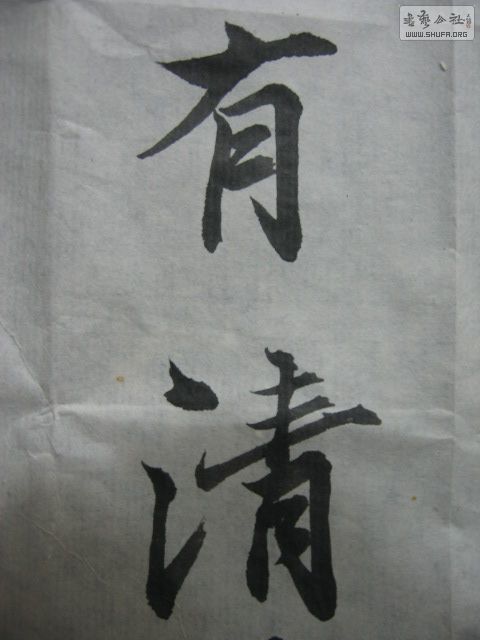 有清
書藝公社
WWW.SHUFA.ORG